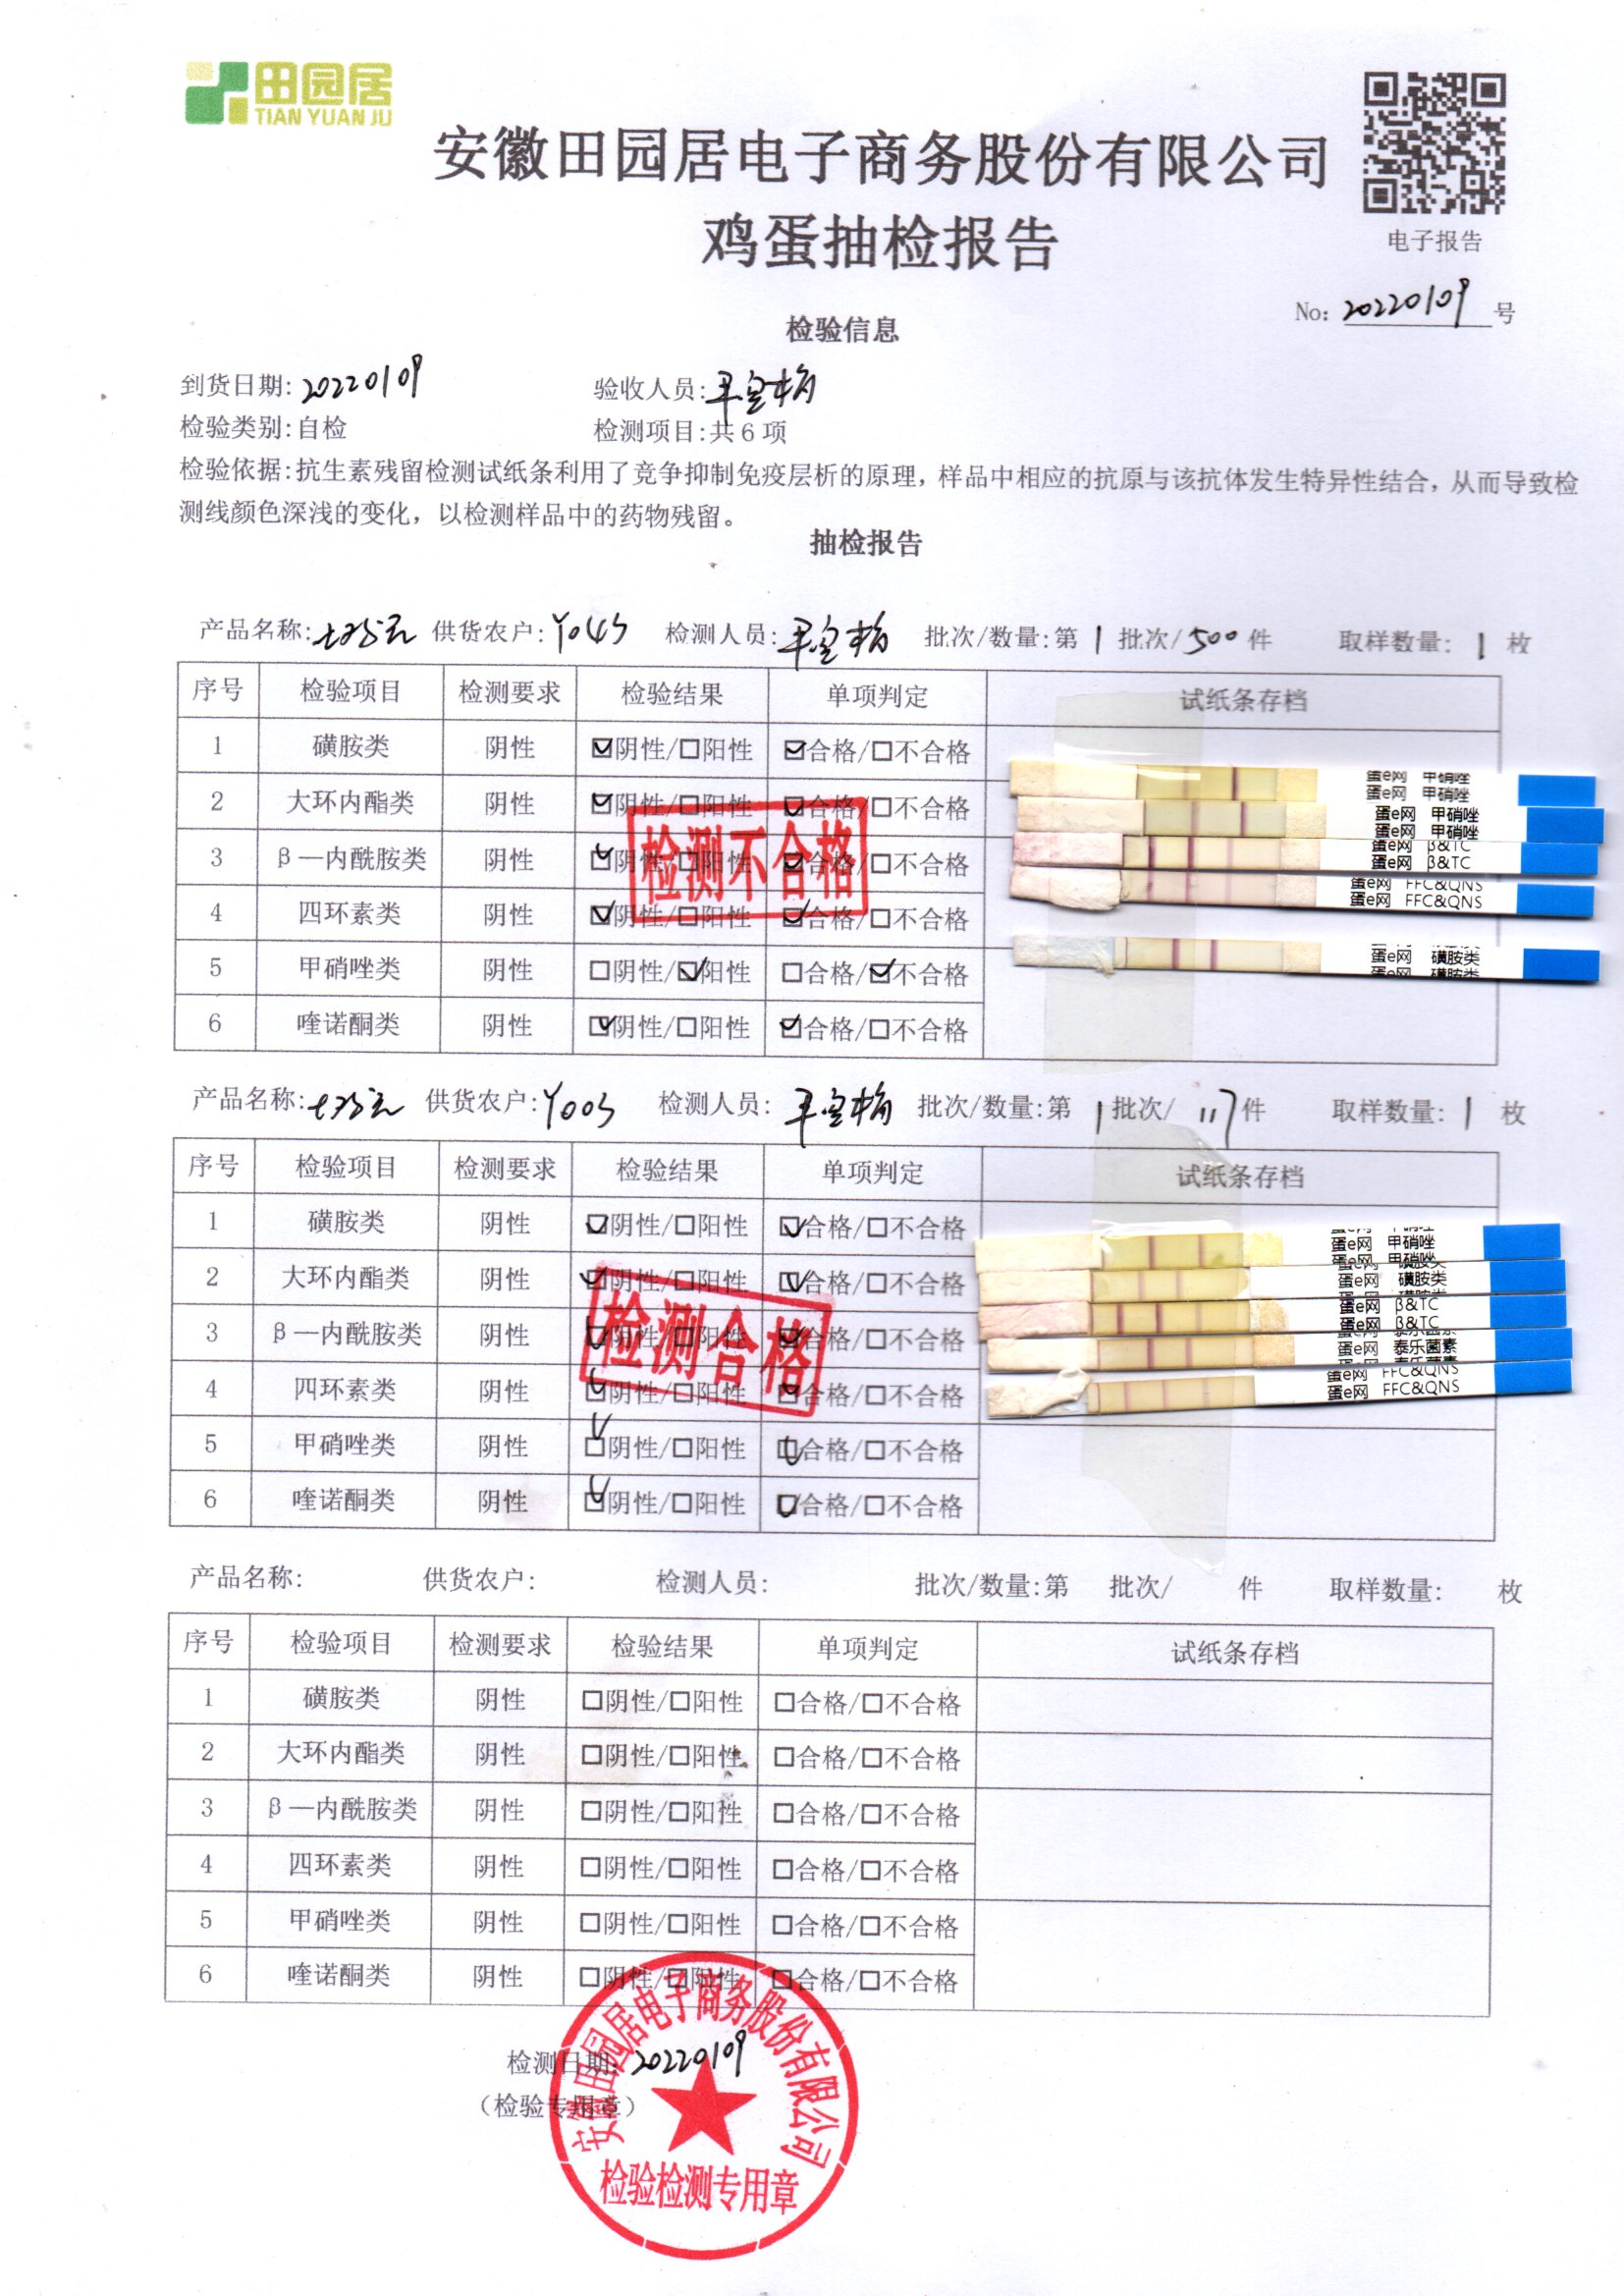 田园居
TIAN YUAN JU
安徽田园居电子商务股份有限公司
鸡蛋抽检报告
电子报告
No: 20220109 号
检验信息
到货日期: 20220109 验收人员:
检验类别: 自检 检测项目: 共 6 项
检验依据: 抗生素残留检测试纸条利用了竞争抑制免疫层析的原理, 样品中相应的抗原与该抗体发生特异性结合, 从而导致检
测线颜色深浅的变化, 以检测样品中的药物残留。
抽检报告
产品名称: 供货农户: Y045 检测人员: 批次/数量: 第 1 批次/ 500 件 取样数量: 1 枚
序号 检验项目 检测要求 检验结果 单项判定 试纸条存档
1 磺胺类 阴性 ☑阴性/☐阳性 ☑合格/☐不合格
2 大环内酯类 阴性 ☑阴性/☐阳性 ☑合格/☐不合格
3 β—内酰胺类 阴性 ☑阴性/☐阳性 ☑合格/☐不合格
4 四环素类 阴性 ☑阴性/☐阳性 ☑合格/☐不合格
5 甲硝唑类 阴性 ☐阴性/☑阳性 ☐合格/☑不合格
6 喹诺酮类 阴性 ☑阴性/☐阳性 ☑合格/☐不合格
检测不合格
蛋e网 甲硝唑
蛋e网 甲硝唑
蛋e网 甲硝唑
蛋e网 甲硝唑
蛋e网 β&TC
蛋e网 β&TC
蛋e网 FFC&QNS
蛋e网 FFC&QNS
蛋e网 磺胺类
蛋e网 磺胺类
产品名称: 供货农户: Y005 检测人员: 批次/数量: 第 1 批次/ 117 件 取样数量: 1 枚
序号 检验项目 检测要求 检验结果 单项判定 试纸条存档
1 磺胺类 阴性 ☑阴性/☐阳性 ☑合格/☐不合格
2 大环内酯类 阴性 ☑阴性/☐阳性 ☑合格/☐不合格
3 β—内酰胺类 阴性 ☑阴性/☐阳性 ☑合格/☐不合格
4 四环素类 阴性 ☑阴性/☐阳性 ☑合格/☐不合格
5 甲硝唑类 阴性 ☑阴性/☐阳性 ☑合格/☐不合格
6 喹诺酮类 阴性 ☑阴性/☐阳性 ☑合格/☐不合格
检测合格
蛋e网 甲硝唑
蛋e网 甲硝唑
蛋e网 磺胺类
蛋e网 β&TC
蛋e网 β&TC
蛋e网 泰乐菌素
蛋e网 FFC&QNS
蛋e网 FFC&QNS
产品名称: 供货农户: 检测人员: 批次/数量: 第 批次/ 件 取样数量: 枚
序号 检验项目 检测要求 检验结果 单项判定 试纸条存档
1 磺胺类 阴性 ☐阴性/☐阳性 ☐合格/☐不合格
2 大环内酯类 阴性 ☐阴性/☐阳性 ☐合格/☐不合格
3 β—内酰胺类 阴性 ☐阴性/☐阳性 ☐合格/☐不合格
4 四环素类 阴性 ☐阴性/☐阳性 ☐合格/☐不合格
5 甲硝唑类 阴性 ☐阴性/☐阳性 ☐合格/☐不合格
6 喹诺酮类 阴性 ☐阴性/☐阳性 ☐合格/☐不合格
检测日期: 20220109
（检验专用章）
安徽田园居电子商务股份有限公司
检验检测专用章